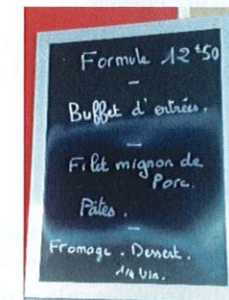 Formule 12€50
-
Buffet d'entrées.
-
Filet mignon de
Porc.
Pâtes.
-
Fromage. Dessert.
1/4 Vin.